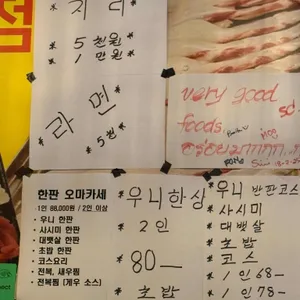 점
지리
* 5천원
* 1만원
* 라면
* 5천원
very good
foods.
* 한판 오마카세
1인 88,000원 / 2인 이상
• 우니 한판
• 사시미 한판
• 대뱃살 한판
• 초밥 한판
• 코스요리
• 전복, 새우찜
• 전복찜 (게우 소스)
* 우니한상 *
* 2인 *
* 80—
* 초밥
* 우니 반판코스
* 사시미
* 대뱃살
* 초밥
* 코스
* 1인 68—
* 1인 78—